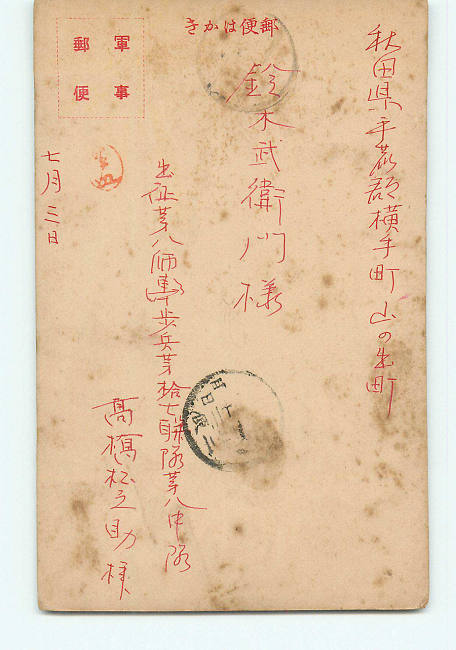 郵便はかき
軍事
郵便
秋田県平鹿郡横手町山の出町
鈴木武衛門様
出征第八師團歩兵第拾七聯隊第八中隊
髙橋松之助様
七月三日